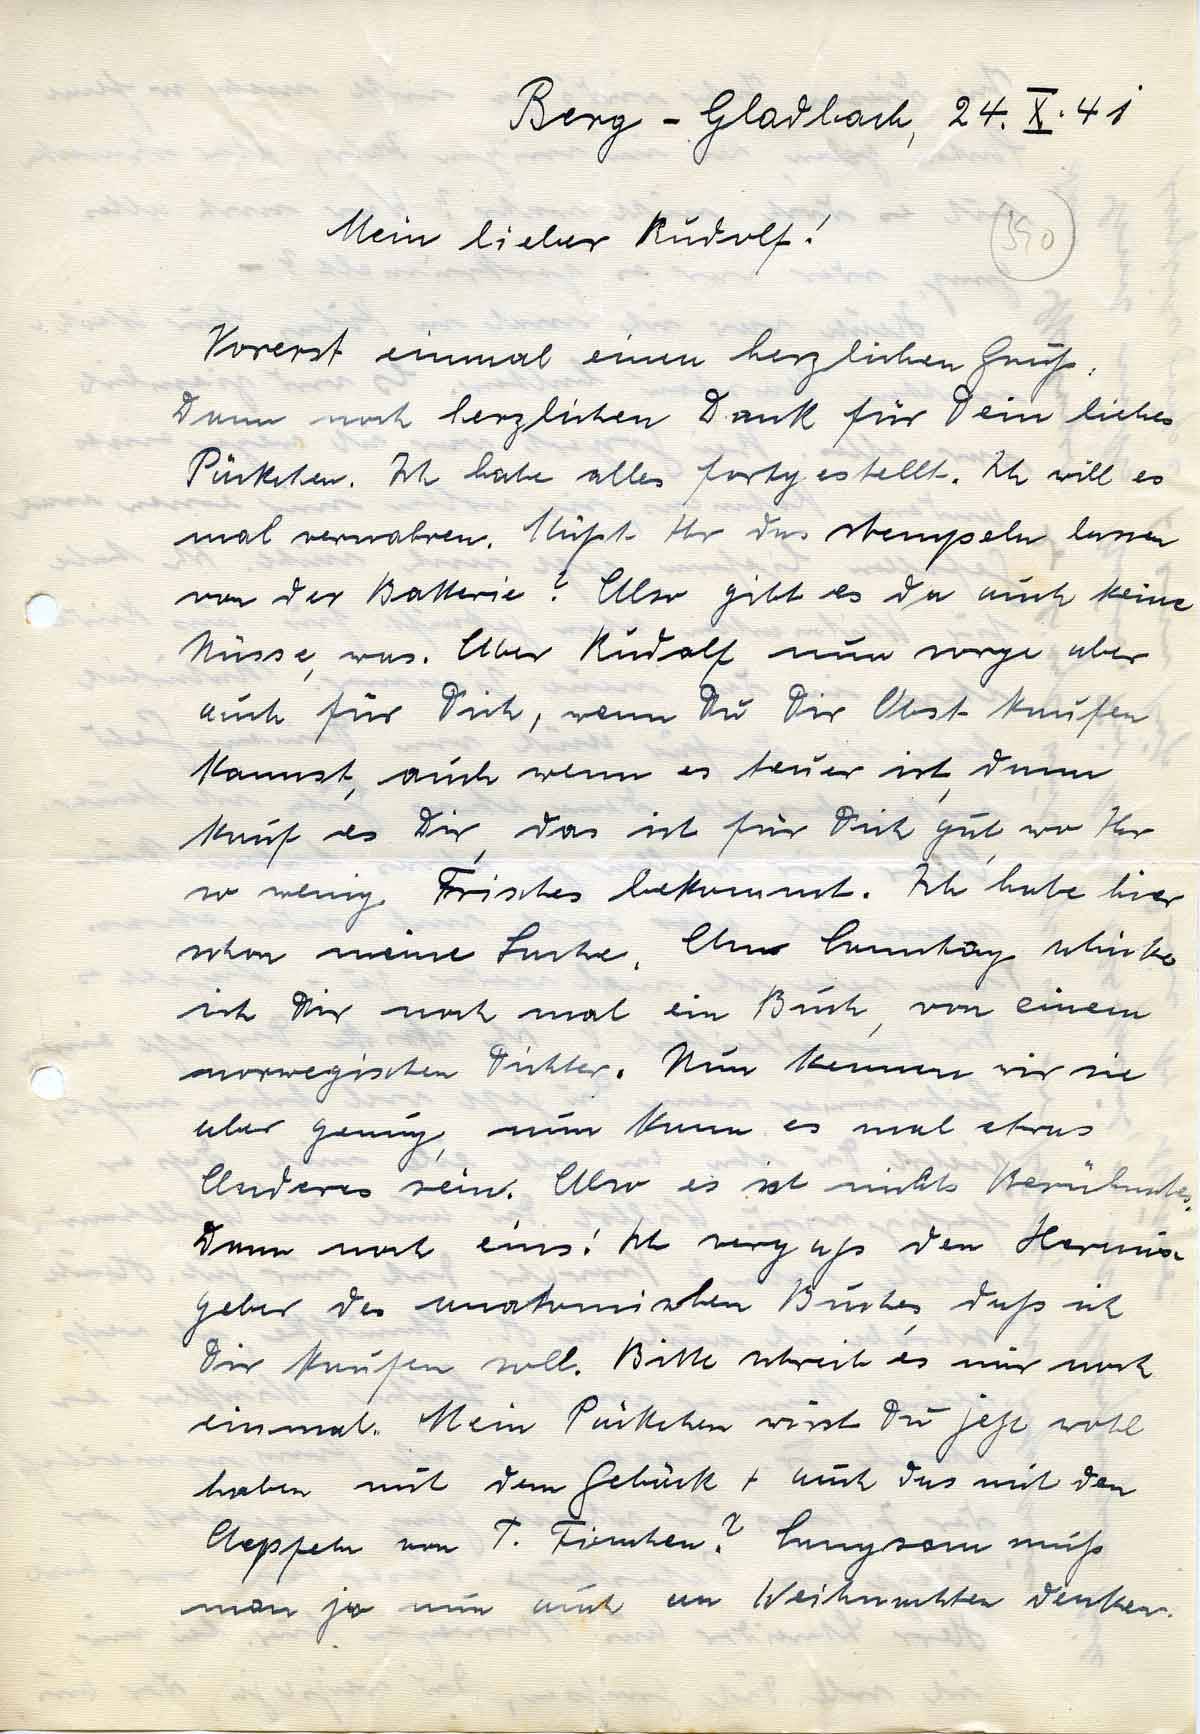 Berg-Gladbach, 24. X. 41
Mein lieber Rudolf!
390
Vorerst einmal einen herzlichen Gruß.
Dann noch herzlichen Dank für Dein liebes
Päckchen. Ich habe alles fortgestellt. Ich will es
mal verwahren. Müßt Ihr das stempeln lassen
von der Batterie? Also gibt es da auch keine
Nüsse, was. Aber Rudolf nun sorge aber
auch für Dich, wenn Du Dir Obst kaufen
kannst, auch wenn es teuer ist, dann
kauf es Dir, das ist für Dich gut, wo Ihr
so wenig Frisches bekommt. Ich habe hier
schon meine Sache. Am Sonntag schicke
ich Dir noch mal ein Buch, von einem
norwegischen Dichter. Nun kennen wir sie
aber genug, nun kann es mal etwas
Anderes sein. Also es ist nichts Berühmtes.
Dann noch eins! Ich vergaß den Heraus-
geber des anatomischen Buches, daß ich
Dir kaufen soll. Bitte schreib es mir noch
einmal. Mein Päckchen wirst Du jetzt wohl
haben mit dem Gebäck + auch das mit den
Aepfeln von T. Fienchen? Langsam muß
man ja nun auch an Weihnachten denken.